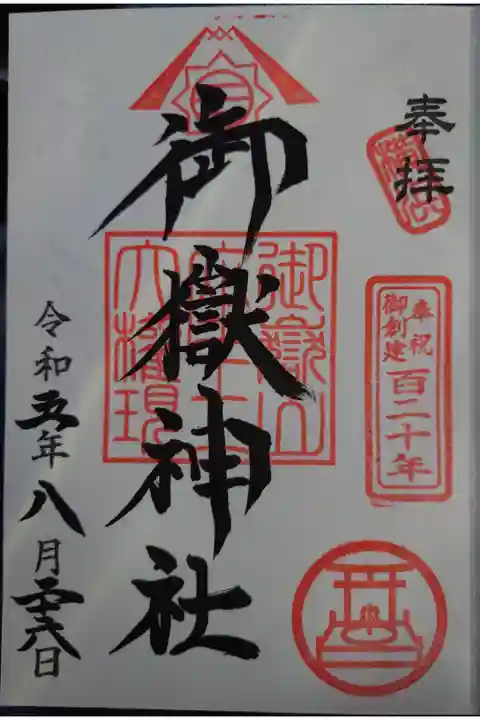 奉拝
奉祝
御創建
百二十年
御嶽神社
御嶽山
大権現
令和五年八月二十六日